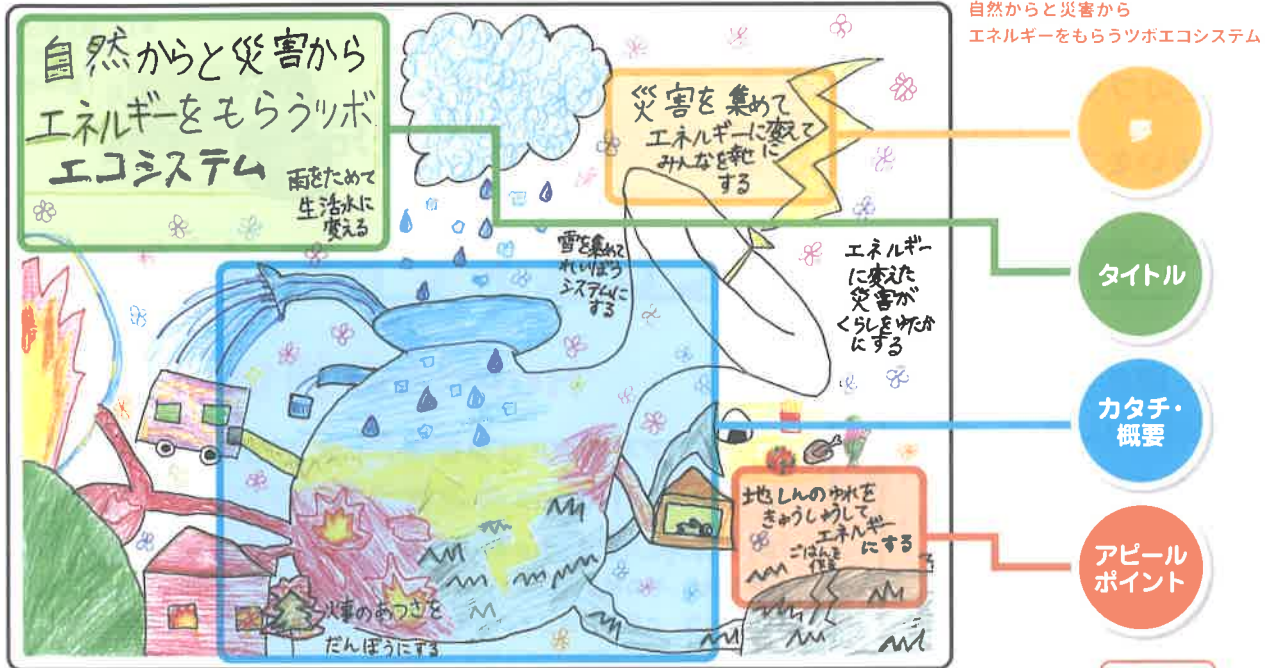 自然からと災害から
エネルギーをもらうツボエコシステム
自然からと災害から
エネルギーをもらうツボ
エコシステム
雨をためて
生活水に
変える
災害を集めて
エネルギーに変えて
みんなを幸せに
する
雪を集めて
れいぼう
システムに
する
エネルギー
に変えた
災害が
くらしをゆたか
にする
地しんのゆれを
きゅうしゅうして
エネルギー
にする
ごはんを
作る
火事のあつさを
だんぼうにする
夢
タイトル
カタチ・
概要
アピール
ポイント